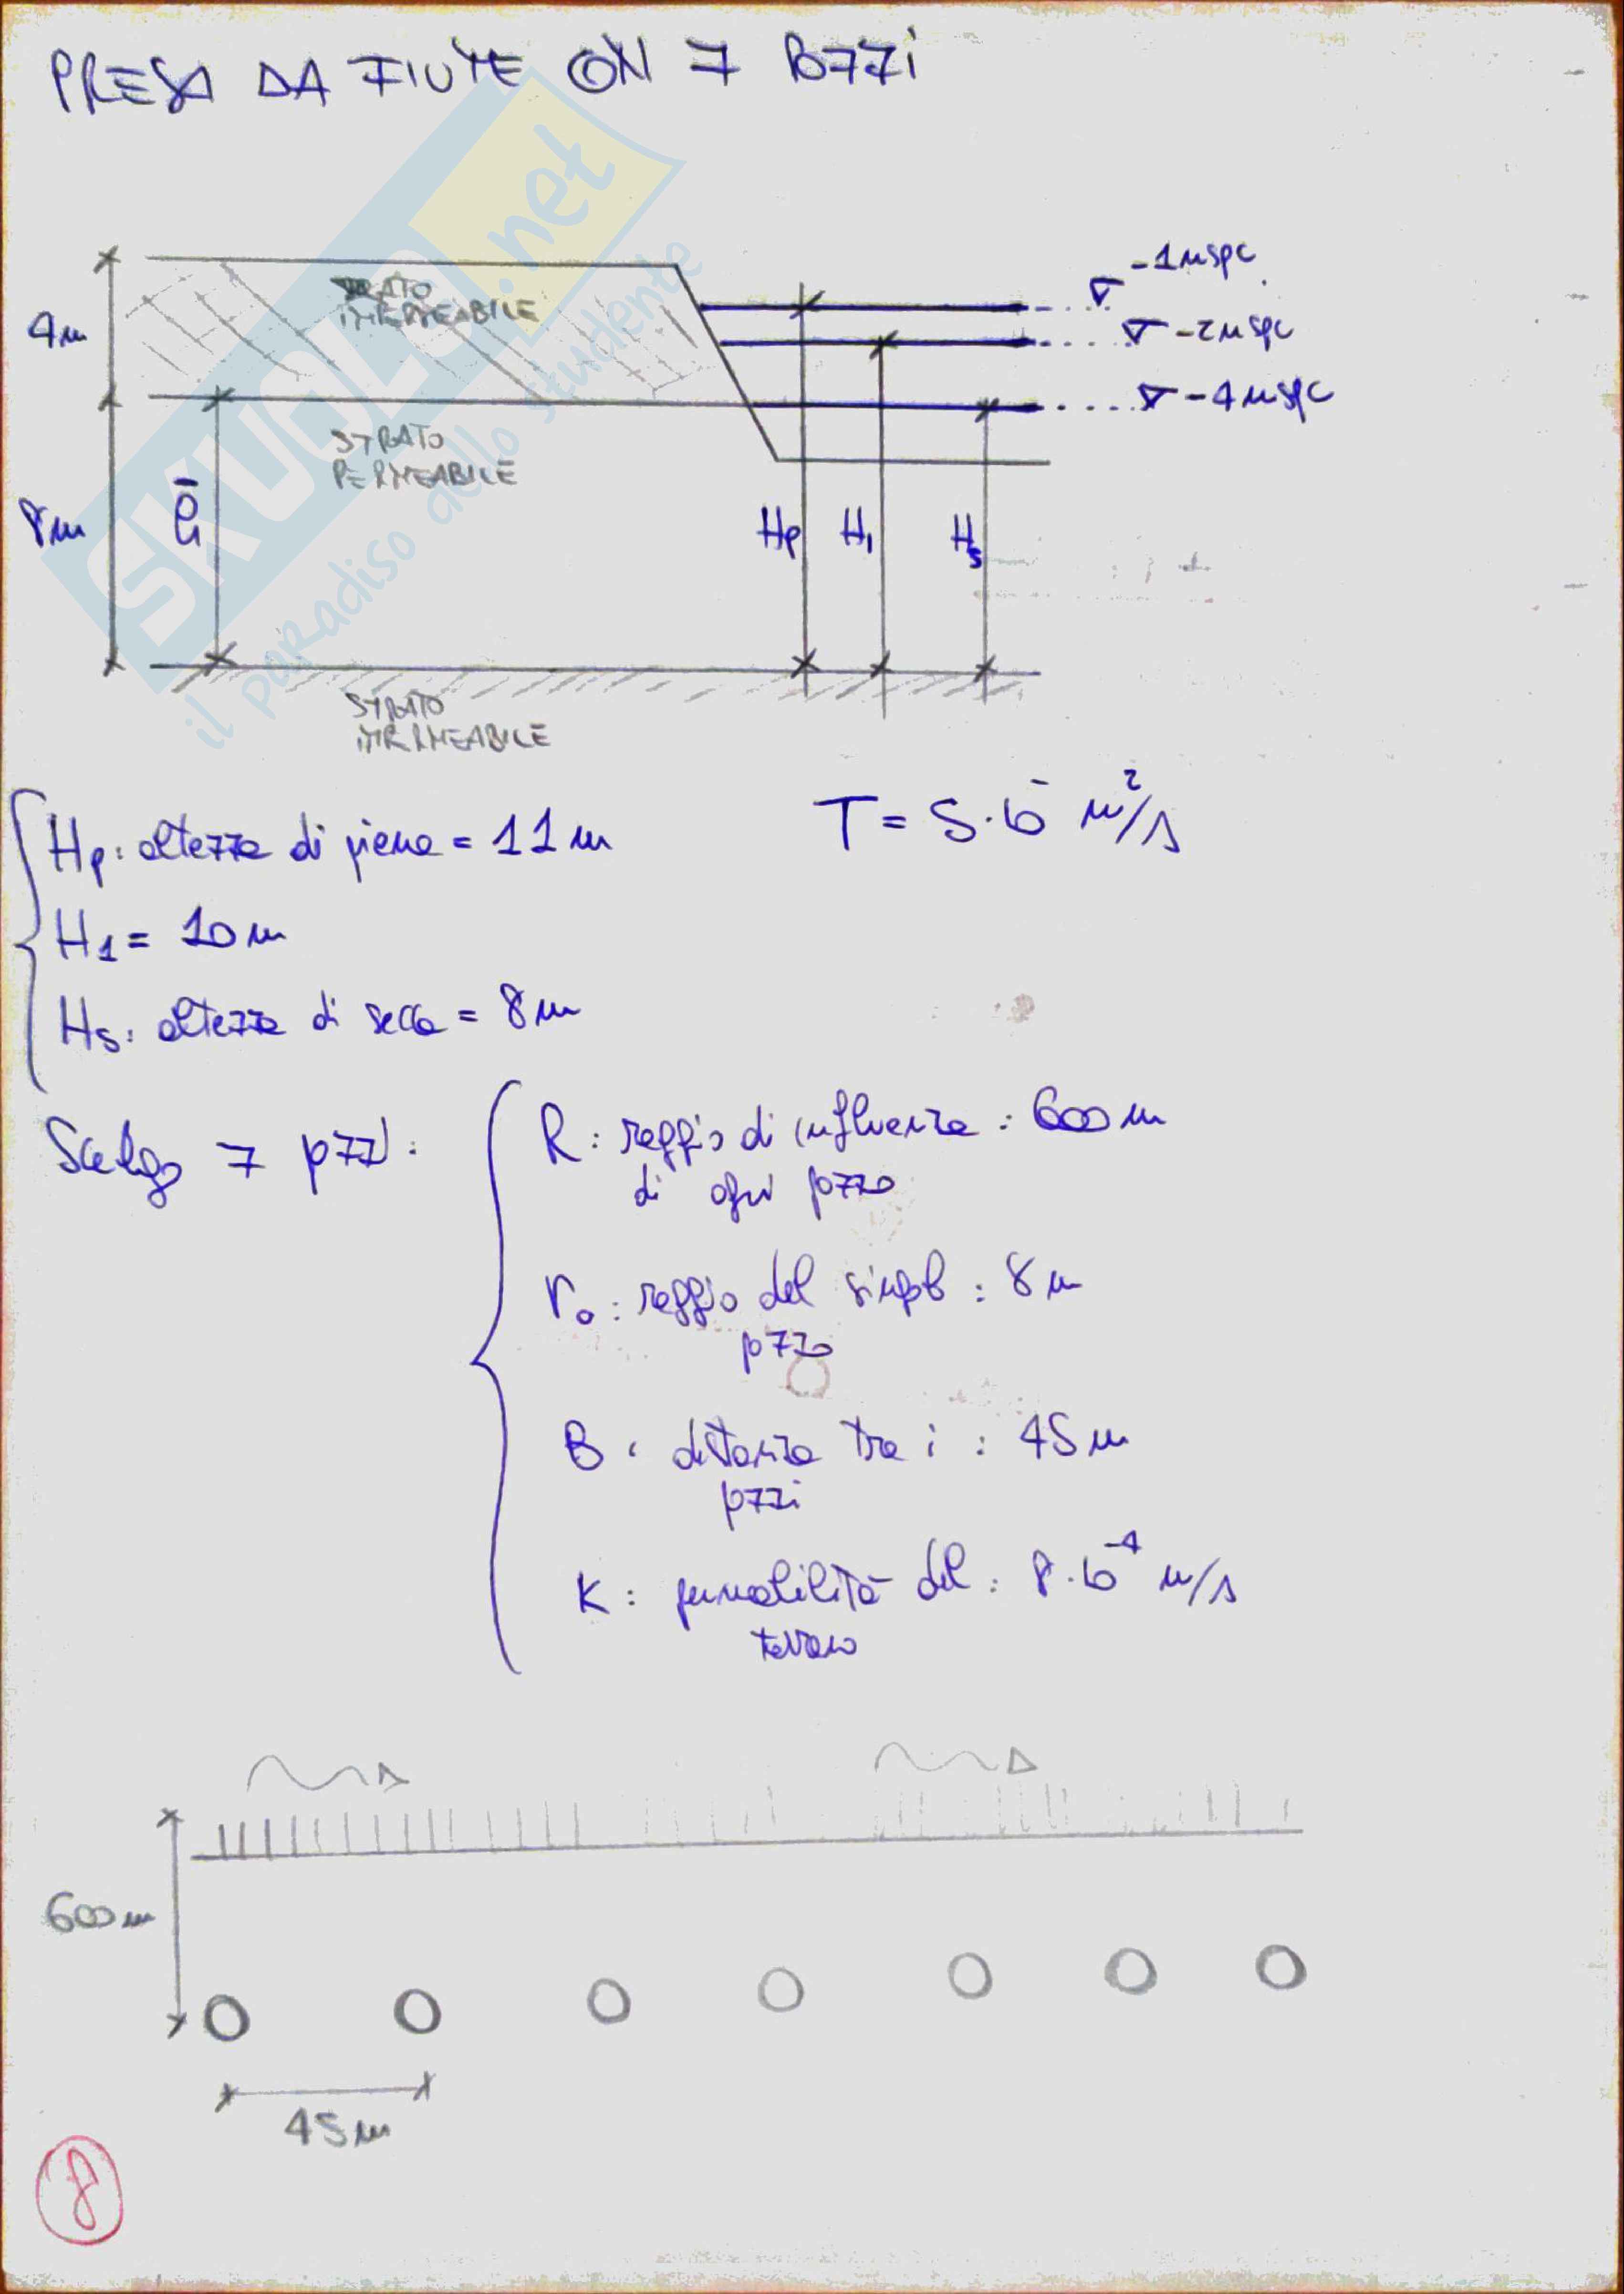 PRESA DA FIUME CON 7 POZZI
-1 m spc
STRATO
IMPERMEABILE
4m
-2 m spc
-4 m spc
STRATO
PERMEABILE
8m
Hp H1 Hs
STRATO
IMPERMEABILE
Hp: altezza di piena = 11 m
H1 = 10 m
Hs: altezza di secca = 8 m
Scelgo 7 pozzi:
R: raggio di influenza : 600 m
di ogni pozzo
r0: raggio del singolo : 8 m
pozzo
B: distanza tra i : 45 m
pozzi
K: permeabilità del : 8·10⁻⁴ m/s
terreno
600 m
45 m
8
SKUOLA.net
il paradiso dello studente